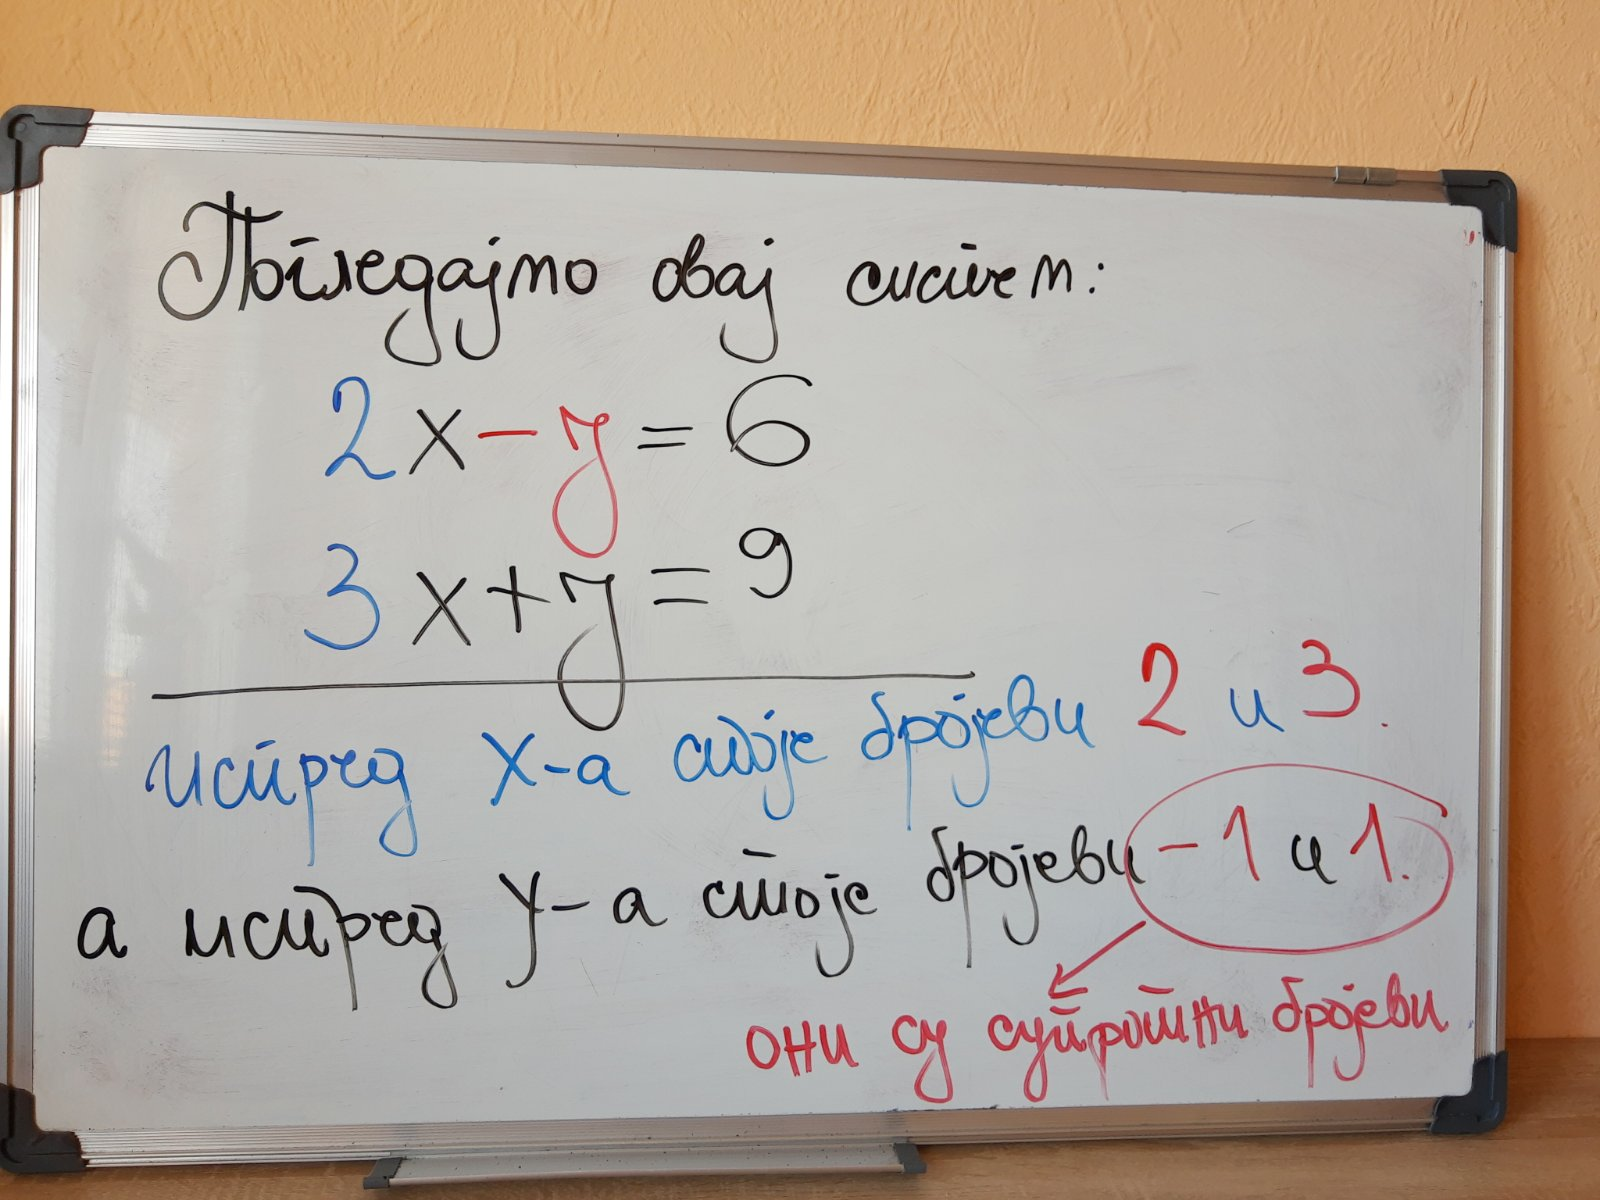 Погледајмо овај систем:
2x-y=6
3x+y=9
испред x-а стоје бројеви 2 и 3.
а испред y-а стоје бројеви -1 и 1.
они су супротни бројеви